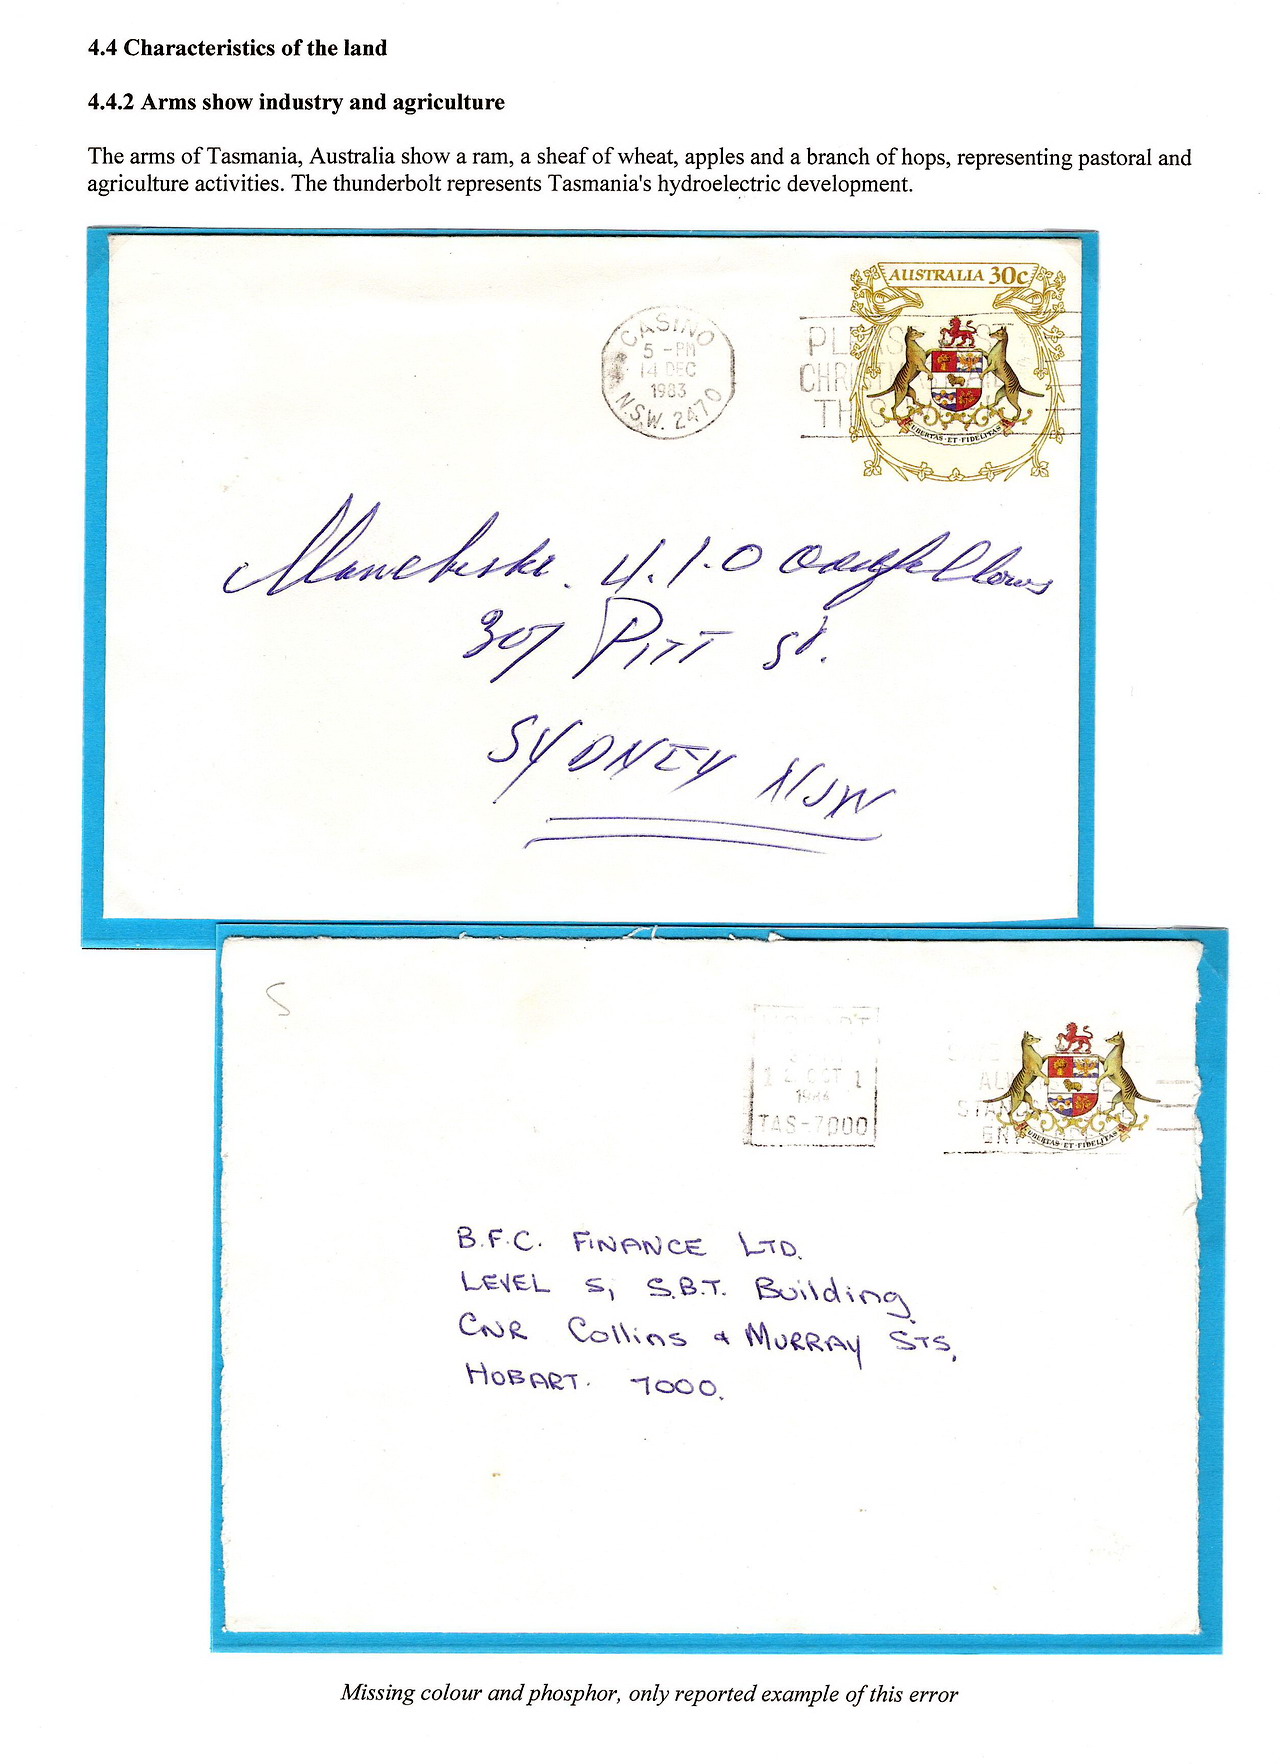 4.4 Characteristics of the land
4.4.2 Arms show industry and agriculture
The arms of Tasmania, Australia show a ram, a sheaf of wheat, apples and a branch of hops, representing pastoral and
agriculture activities. The thunderbolt represents Tasmania's hydroelectric development.
AUSTRALIA 30c
CASINO
5 -PM
14 DEC
1983
N.S.W. 2470
PLEASE POST
CHRISTMAS MAIL
THIS
LIBERTAS·ET·FIDELITAS
Oddfellows
307 PITT St.
SYDNEY NSW
HOBART
12 OCT 1
TAS-7000
LIBERTAS·ET·FIDELITAS
B.F.C. FINANCE LTD.
LEVEL 5, S.B.T. Building
CNR Collins & MURRAY STS,
HOBART. 7000.
Missing colour and phosphor, only reported example of this error